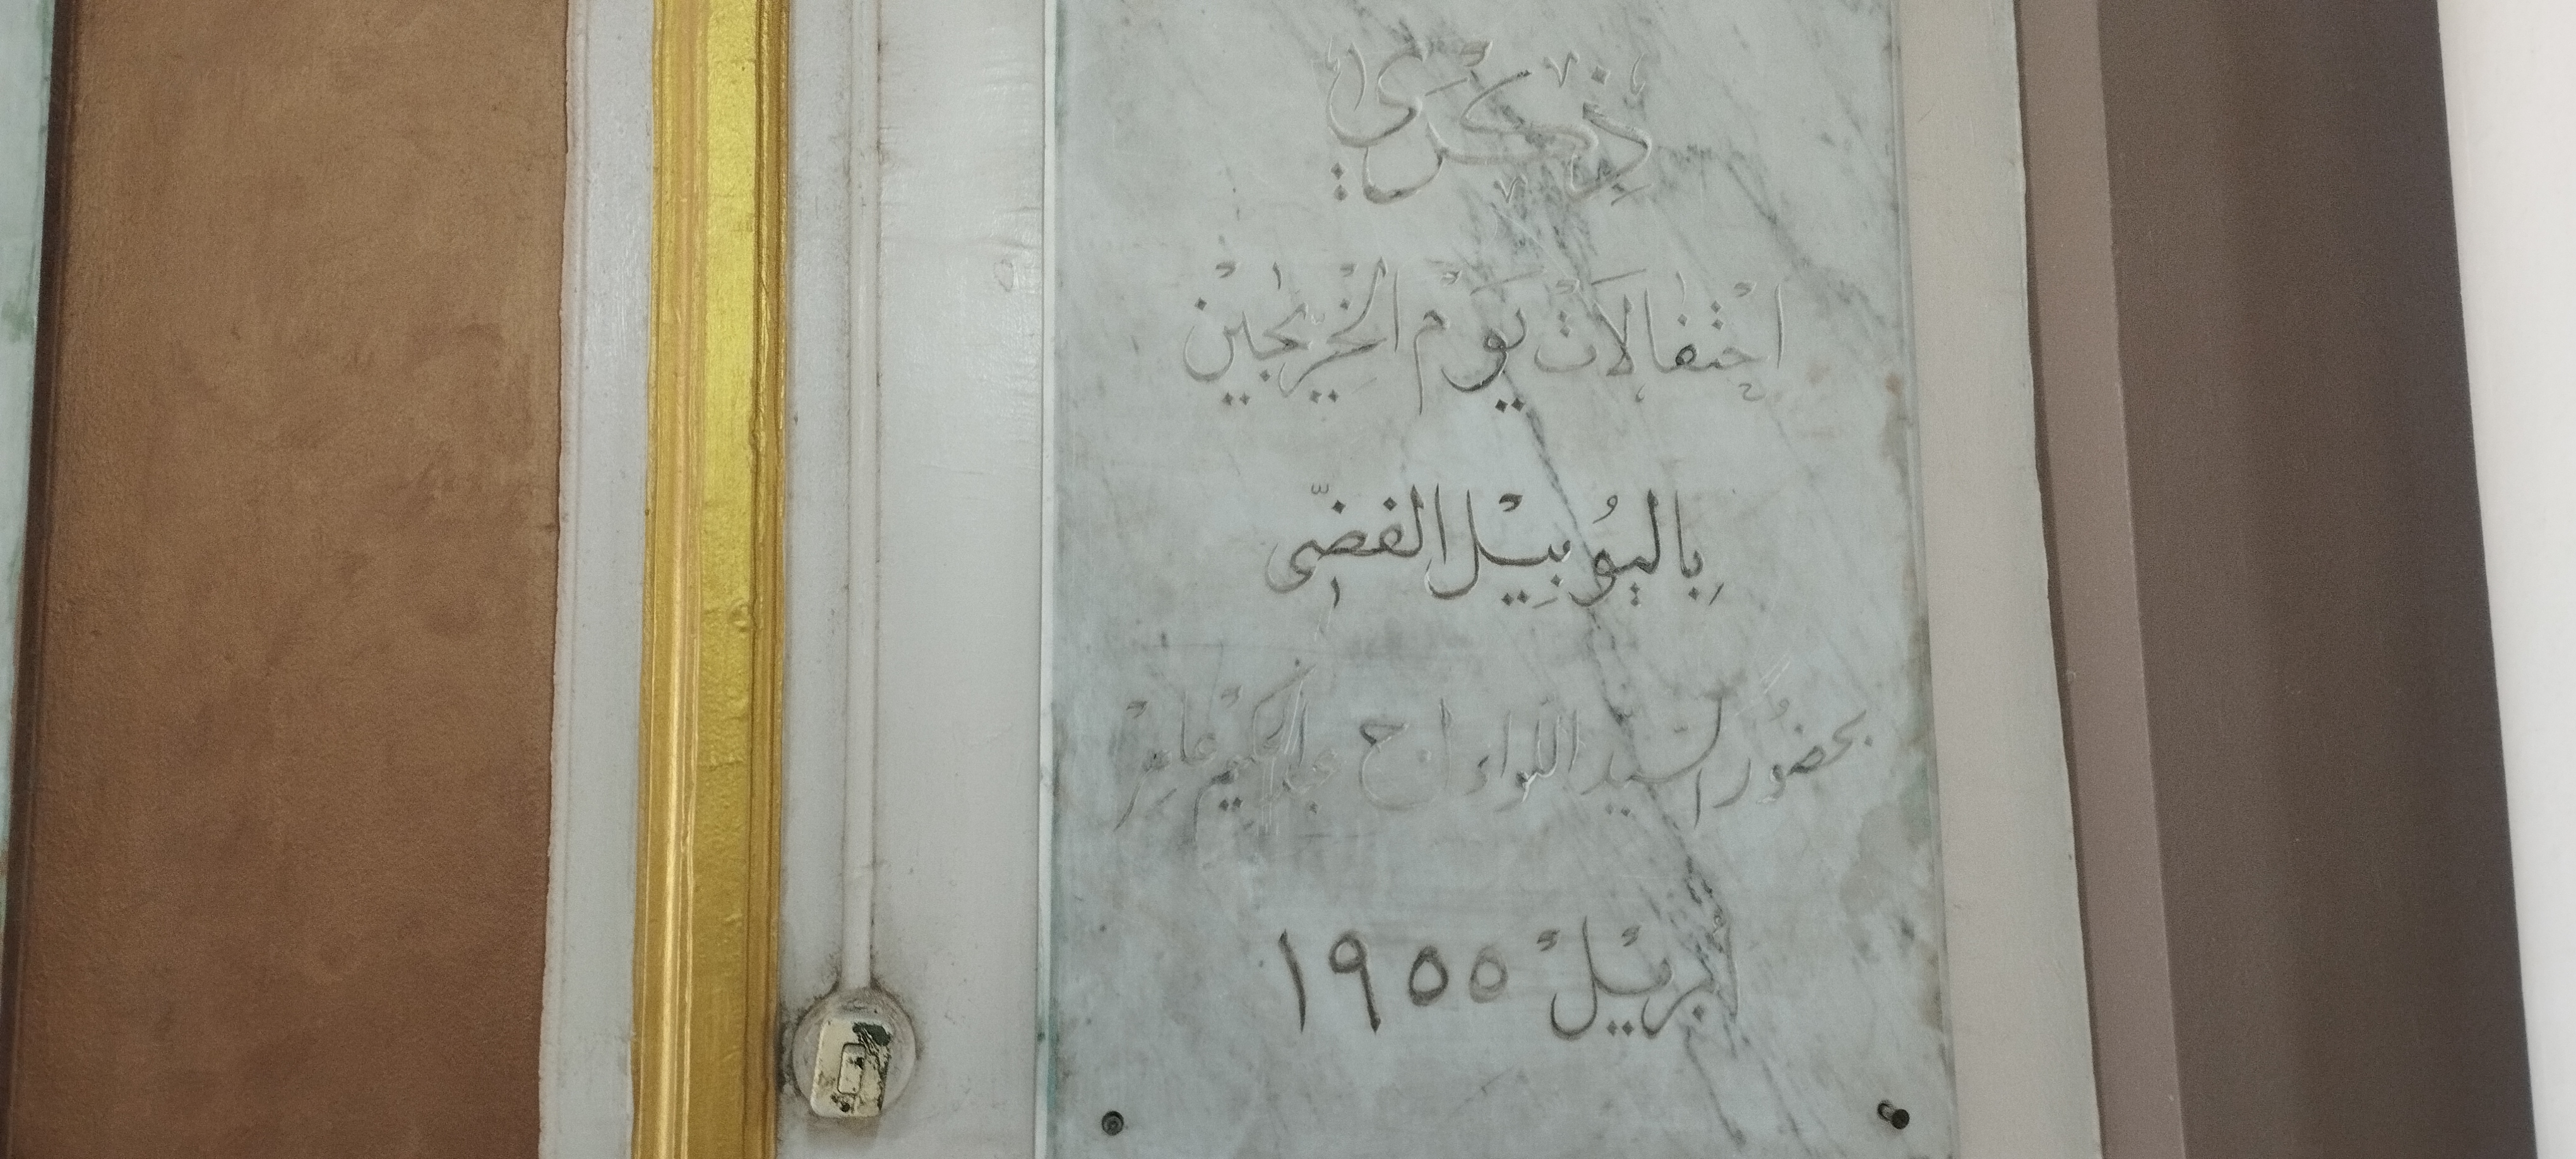 ذِكْرَى
احْتِفَالَاتْ يَوْم الخِرِّيجِيْنْ
بِاليُوبِيْل الفضّى
بحضُور السَّيد اللواء ا.ح عبد الحكِيْم عَامِرْ
أبريْلْ ١٩٥٥